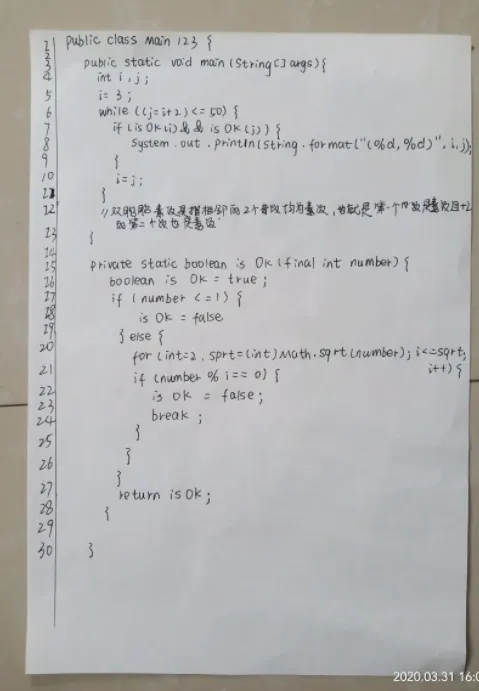 1 public class Main 123 {
2
3 public static void main (String [] args) {
4 int i, j;
5 i = 3;
6 while ((j=i+2) <= 50) {
7 if (is OK (i) && is OK (j)) {
8 System . out . println (String . format ("(%d, %d)", i, j);
9 }
10 i=j;
11 }
12 //双胞胎素数是指相邻的2个奇数均为素数，也就是第一个数是素数且+2
13 的第二个数也是素数
{
14
15 private static boolean is OK (final int number) {
16 boolean is OK = true ;
17 if (number <= 1) {
18 is OK = false
19 } else {
20 for (int=2, sprt=(int) Math. sqrt (number); i<=sqrt;
i++) {
21 if (number % i == 0) {
22 is OK = false;
23 break ;
24 }
25 }
26 }
27 return is OK;
28 {
29
30 }
2020.03.31 16:0